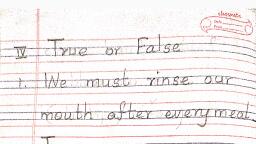 classmate
IV True or False
1. We must rinse our
mouth after every meal.
T